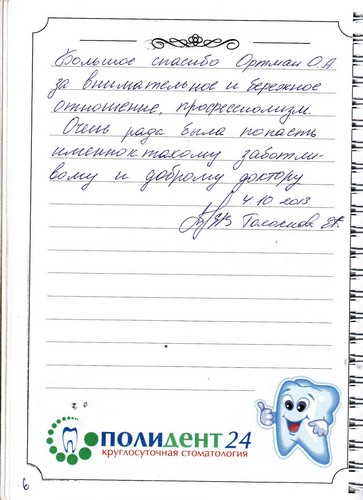 Большое спасибо Ортман О.А
за внимательное и бережное
отношение, профессионализм.
Очень рада была попасть
именно к такому заботли-
вому и доброму доктору
4 10 2013
ПОЛИДЕНТ 24
круглосуточная стоматология
6